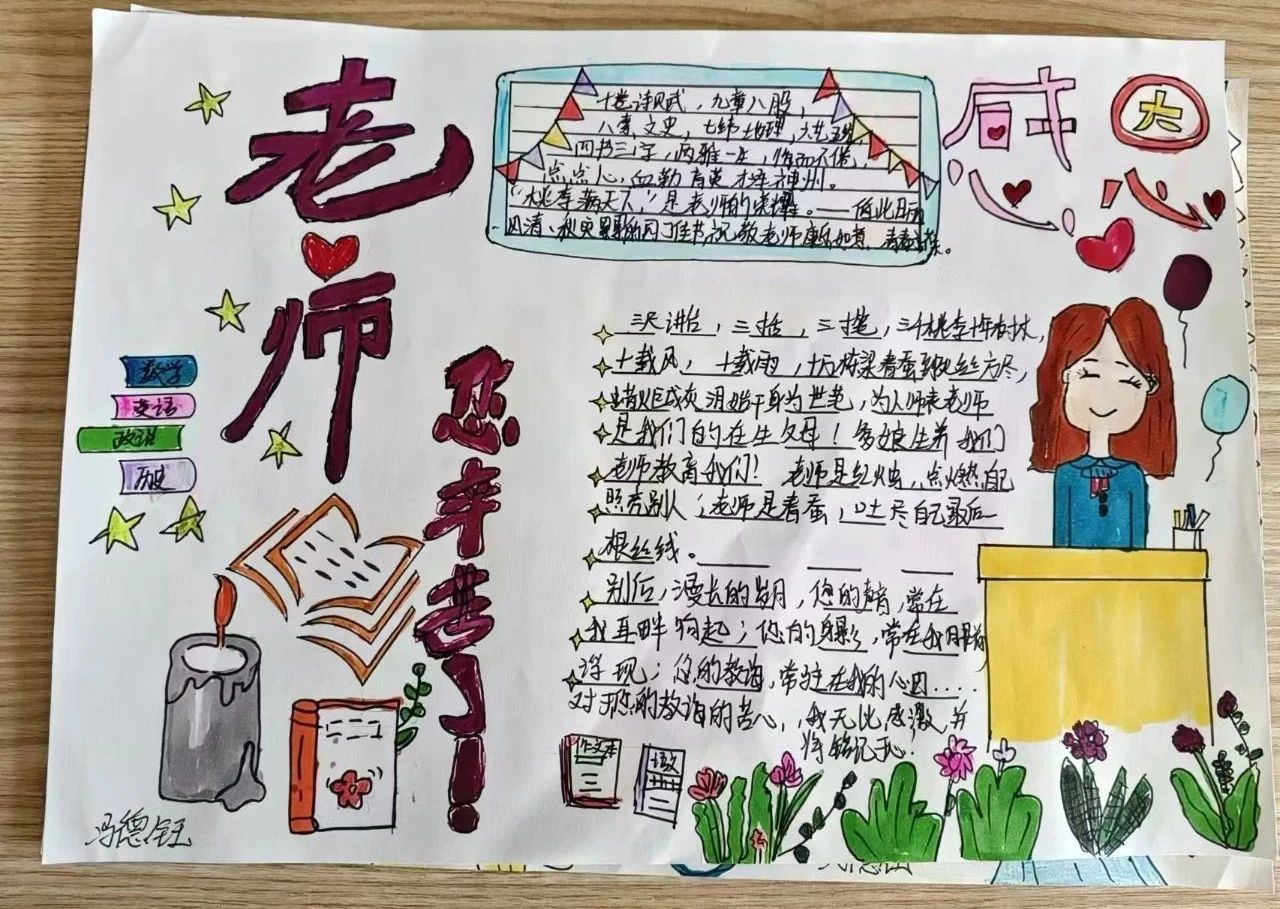 老师
您辛苦了！
感恩
十卷诗赋，九章八股，
八索文史，七纬地理，六艺五经，
四书三字，两雅一生，悔而不倦，
点点心血勤育英才泽神州。
“桃李满天下，”是老师的荣耀。值此月
四清、秋爽的月佳节祝敬老师康乐如意，青春
三尺讲台，三，三笔，三千桃李十年树木，
十载风，十载雨，十万栋梁春蚕到死丝方尽，
蜡炬成灰泪始干身为世范，为人师表老师
是我们的在生父母！爹娘生养我们
老师教育我们！老师是红烛，点燃自己
照亮别人；老师是春蚕，吐尽自己最后一
根丝线。
别后，漫长的岁月，您的声音，常在
我耳畔响起；您的身影，常在我眼前
浮现；您的教诲，常驻在我的心田．．．．
对于您的教诲的苦心，我无比感激，并
将铭记于心！
数学
英语
政治
历史
作文本
三
语文
冯德钰